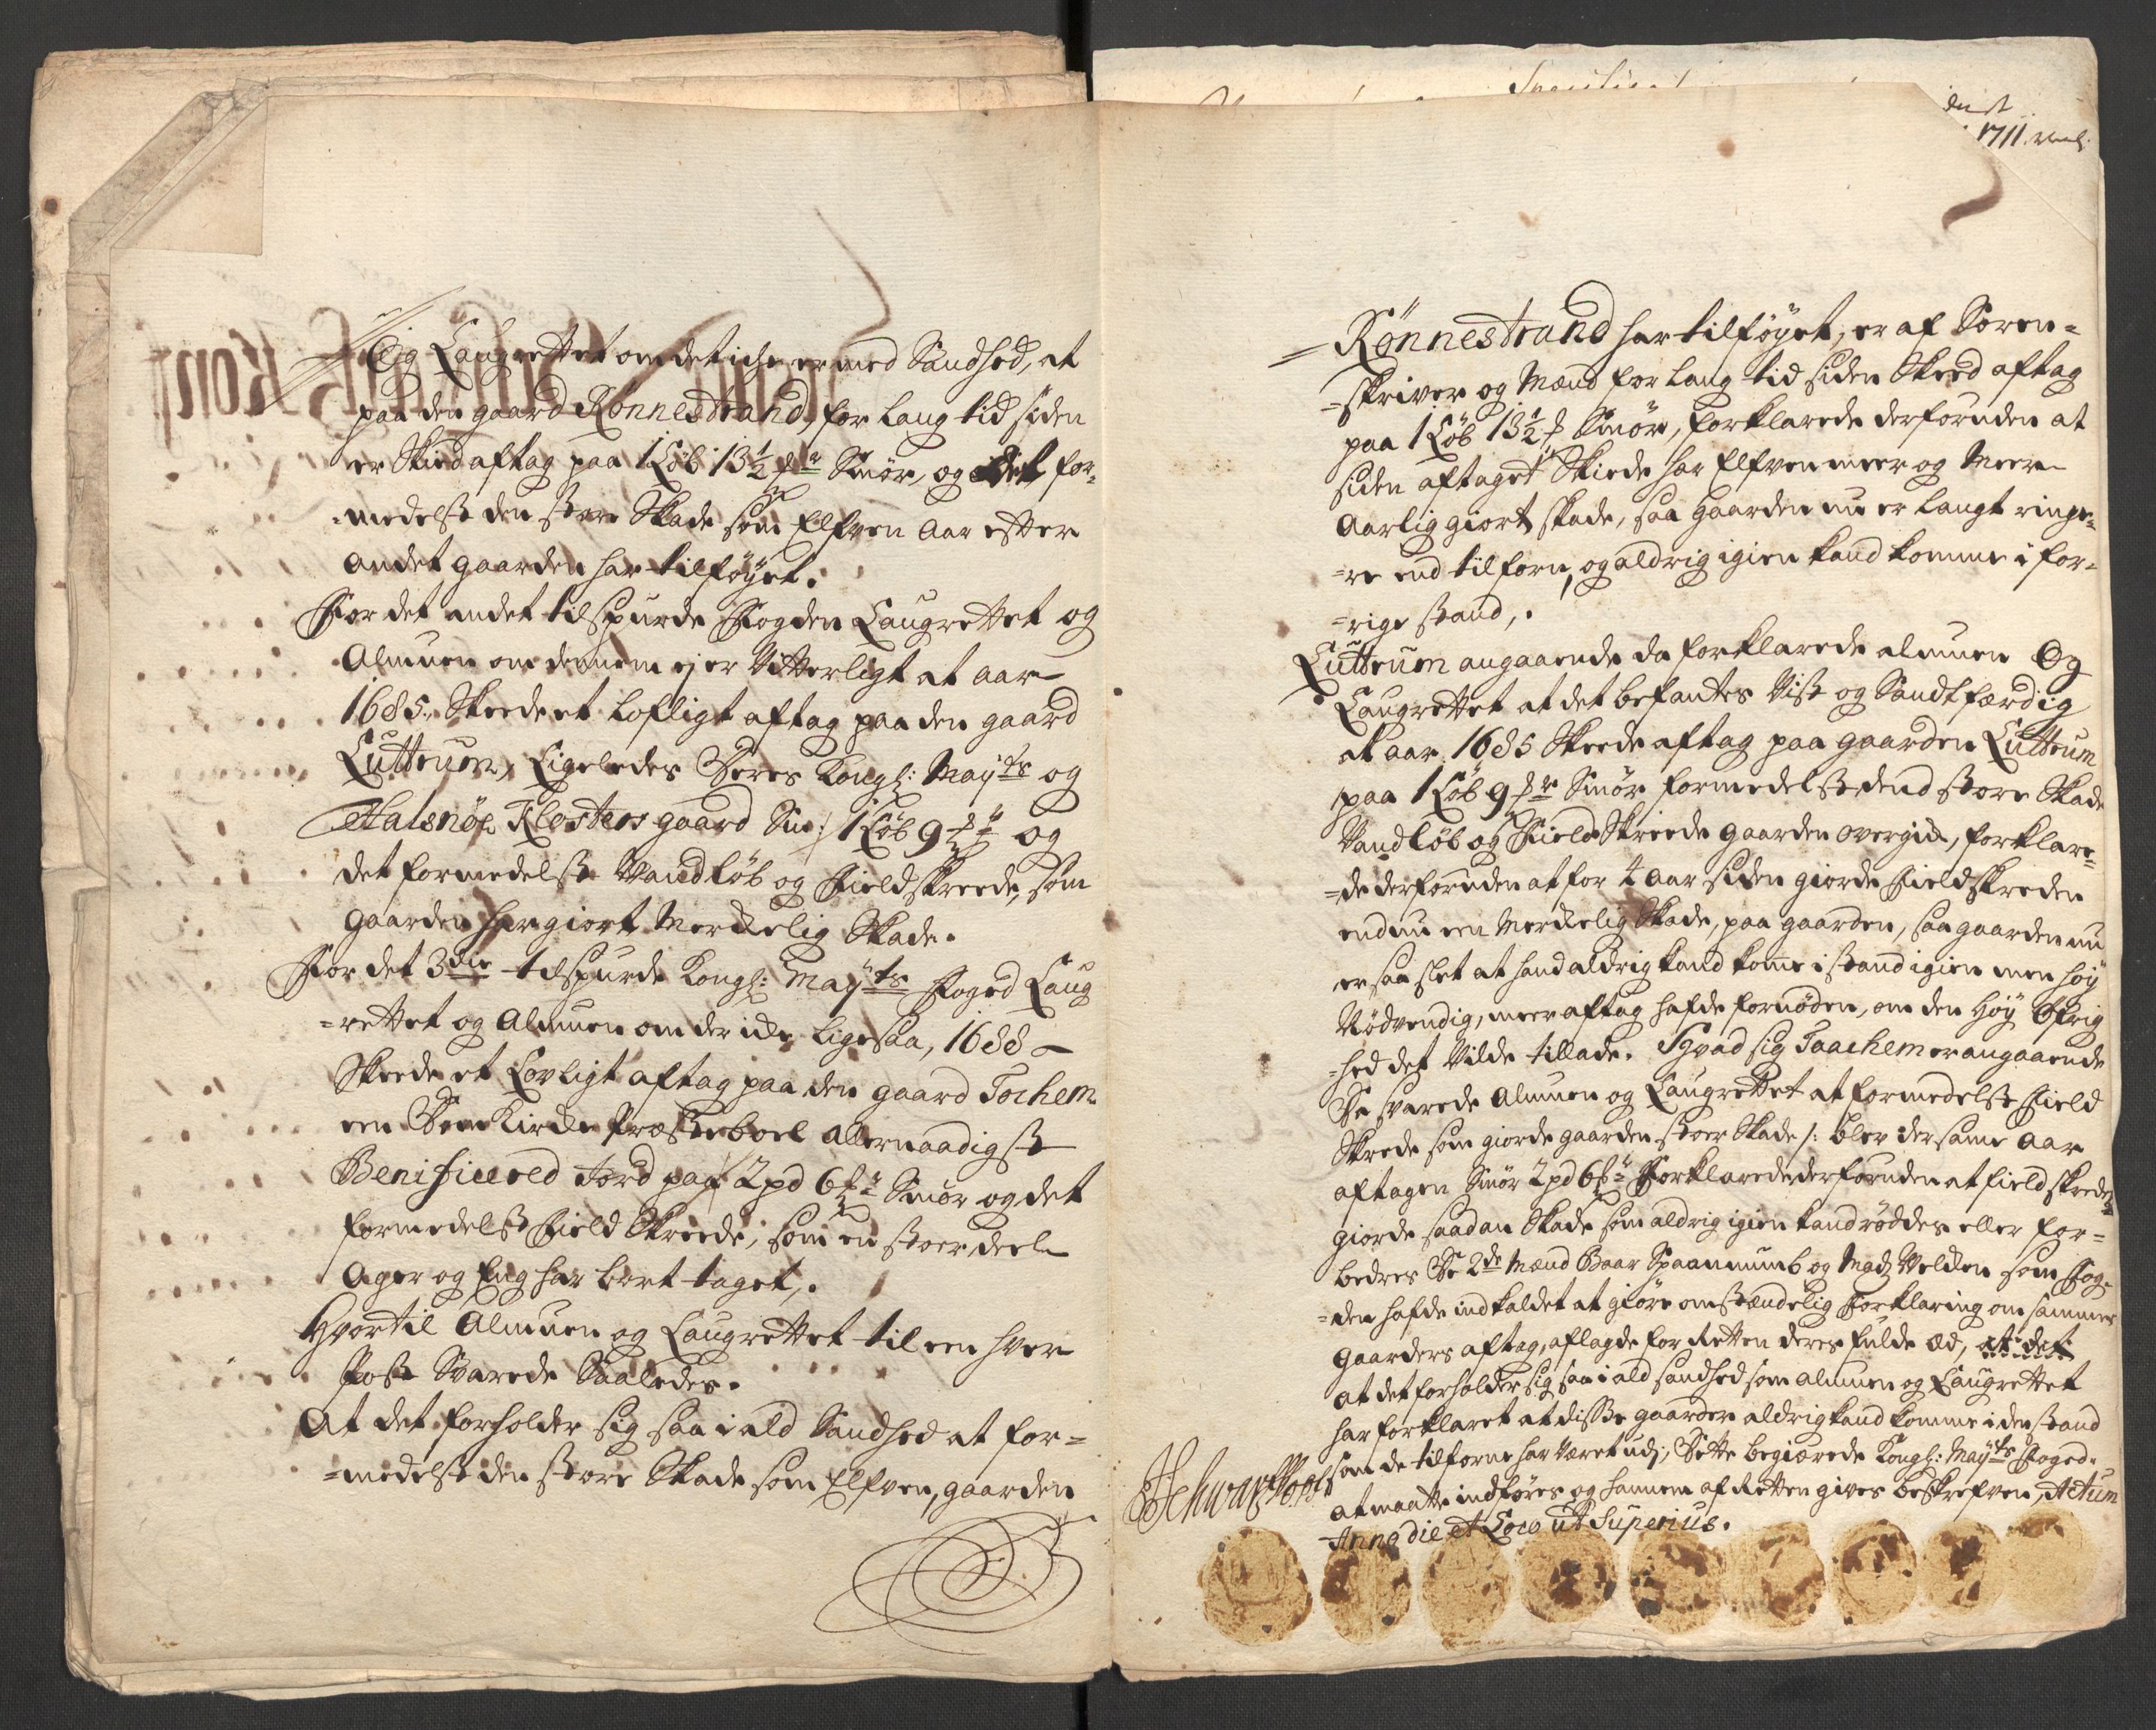 Og Laugrettet om det iche er med Sandhed, at
paa den gaard Rönnestrand, for lang tid siden
er Skied aftag paa 1 Löb 13½ Smör, og det for-
=medelst den store Skade som Elfven Aar efter
andet gaarden har tilföÿet.
For det andet tilspurde Fogden Laugrettet og
Almuen om dennem ej er Vitterligt at aar
1685. Skeede et Lofligt aftag paa den gaard
Lutteum, Ligeledes Deres Kongl: Maÿts og
Halsnöe Klosters gaard Sm: 1 Löb 9 og
det formedelst Vandlöb og Fieldskreede, som
Gaarden har giort Merckelig Skade.
For det 3die tilspurde Kongl: Maÿts Foged Laug
=rettet og Almuen om der icke ligesaa, 1688
Skeede et Lovligt aftag paa den gaard Tochem
een Kircke Præsteboel allernaadigst
Benificered Jord paa 2 pd 6 Smör og det
formedelst Field Skreede, som en stoer deel
Ager og Eng har bort taget.
Hvortil Almuen og Laugrettet til een hver
Post Svarede Saaledes.
At det forholder sig saa i ald Sandhed at for=
=medelst den store Skade som Elfven, gaarden
1711.
=Rönnestrand har tilföÿet, er af Soren=
=skriver og Mænd for lang tid siden Skeed aftag
paa 1 Löb 13½ Smör, forklarede derforuden at
siden aftaget Skiede har Elfven meer og Meer
Aarlig giort skade, saa gaarden nu er langt ringe=
=re end tilforn, og aldrig igien kand komme i for=
=rige stand,.
Lutteum angaaende da forklarede almuen Og
Laugrettet at det befantes Vist og Sandtfærdig
at aar 1685 Skeede aftag paa gaarden Lutteum
paa 1 Löb 9 Smör formedelst dend store Skade
Vandlöb og Field Skreede gaarden overgick, forklare=
=de derforuden at for 4 aar siden giorde Fieldskreden
endnu een Merckelig Skade, paa gaarden, saa gaarden nu
er saa slet at hand aldrig kand kome i stand igien men höÿ
Nödvendig, meer aftag hafde fornöden, om den Höÿ Öfrig
=hed det Vilde tillade. Hvad sig Taachem er angaaende
Da svarede Almuen og Laugrettet at formedelst Field
Skrede som giorde gaarden stoer Skade /: blev der same Aar
aftagen Smör 2 pd 6 Forklarede derforuden at fieldskreden
giorde saadan Skade som aldrig igien kand röddes eller for=
bedres De 2de Mænd Baar Spaannumb og Madz Velden som Fog=
=den hafde indkaldet at giöre omstændelig Forklaring om sammes
Gaarders aftag, aflagde for Retten deres fulde æd, at det
at det forholder sig saa i ald sandhed som almuen og Laugrettet
har forklaret at disse gaarder aldrig kand komme i den stand
som de tilforne har Været udj, Dette begiærede Kongl: Maÿts Foged
at maatte indföres og hannem af Retten gives beskrefven, Actum
Anno die et Loco ut Superius.